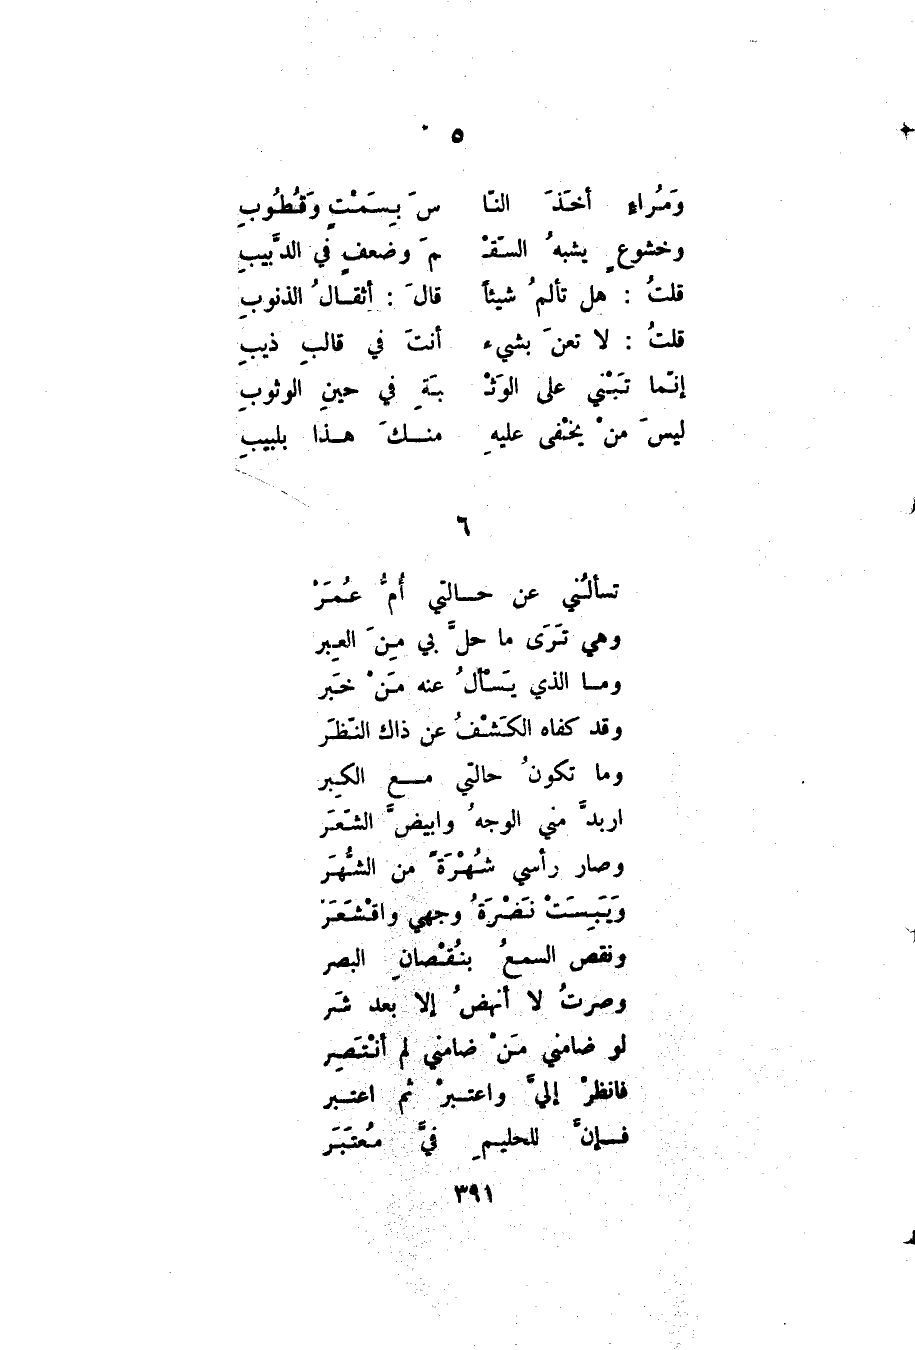 ٥
وَمُراءٍ أخَذَ النّا سَ بِسَمْتٍ وَقُطُوبِ
وخشوعٍ يشبهُ السّقْـ مَ وضعفٍ في الدَّبيبِ
قلتُ : هل تألمُ شيئاً قالَ : أثقـالُ الذنوبِ
قلتُ : لا تعنَ بشيء أنتَ في قالبِ ذيبِ
إنّما تَبْني على الوَثْـ بَةِ في حينِ الوثوبِ
ليسَ منْ يخْفى عليهِ منـكَ هـذا بلبيبِ
٦
تسألُني عن حـالتي أُمُّ عُمَرْ
وهي تَرَى ما حلَّ بي مِنَ العِبر
ومـا الذي يَسْألُ عنه مَنْ خَبَر
وقد كفاه الكَشْفُ عن ذاك النّظَر
وما تكونُ حالتي مـع الكِبر
اربدَّ مني الوجهُ وابيضَّ الشّعَر
وصار رأسي شُهْرَةً من الشُّهَر
وَيَبِسَتْ نَضْرَةُ وجهي واقْشَعَرْ
ونقص السمعُ بنُقْصانِ البصر
وصرتُ لا أنهضُ إلا بعد شَر
لو ضامني مَنْ ضامني لم أنْتَصِر
فانظرْ إليَّ واعتـبرْ ثم اعتـبر
فـإنَّ للحليمِ فيَّ مُعتَبَر
٣٩١